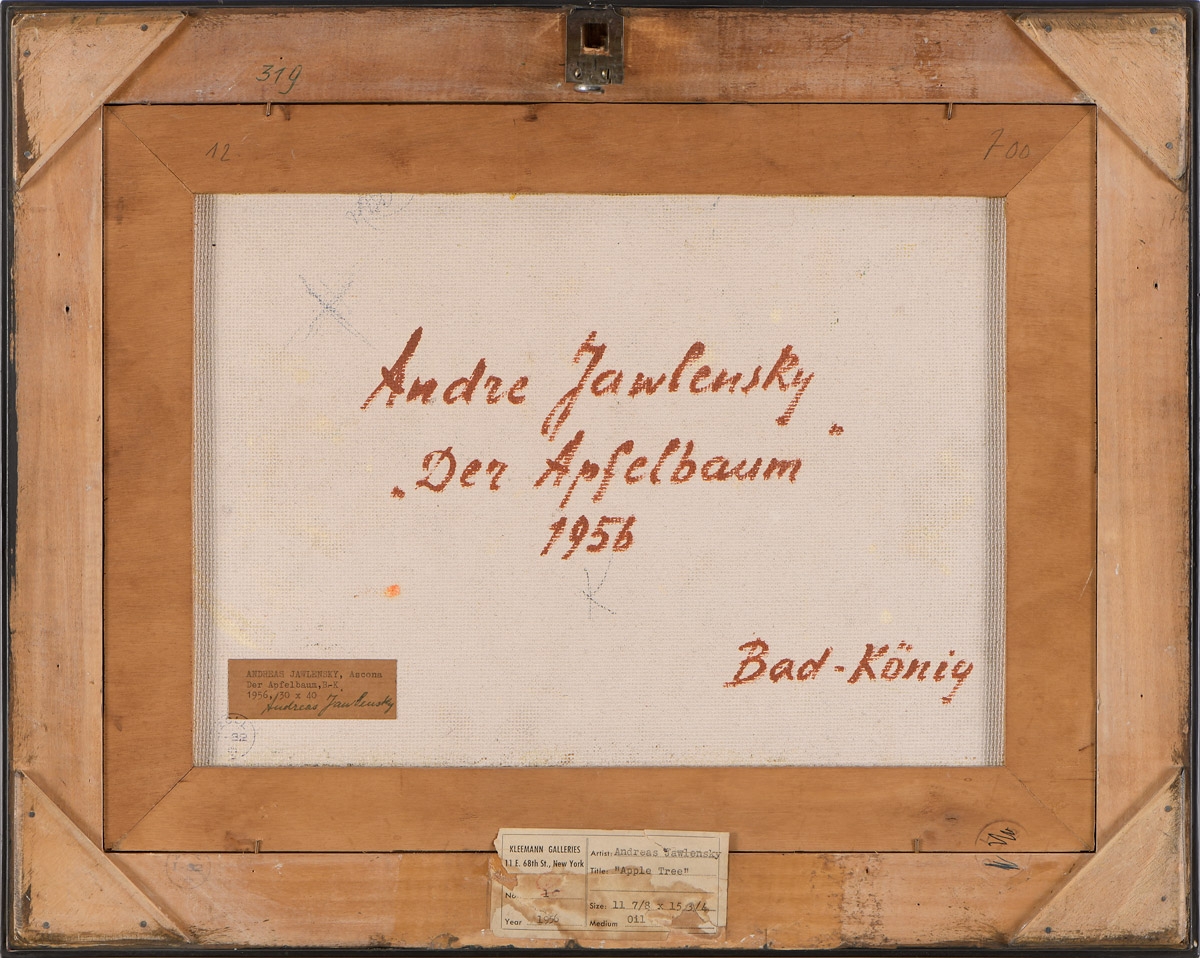 319
12
700
Andre Jawlensky
„Der Apfelbaum"
1956
Bad-König
ANDREAS JAWLENSKY, Ascona
Der Apfelbaum, B-K.
1956, 30 x 40
Andreas Jawlensky
32
KLEEMANN GALLERIES
11 E. 68th St., New York
No. 1
Year 1956
Artist: Andreas Jawlensky
Title: "Apple Tree"
Size: 11 7/8 x 15 3/4
Medium Oil